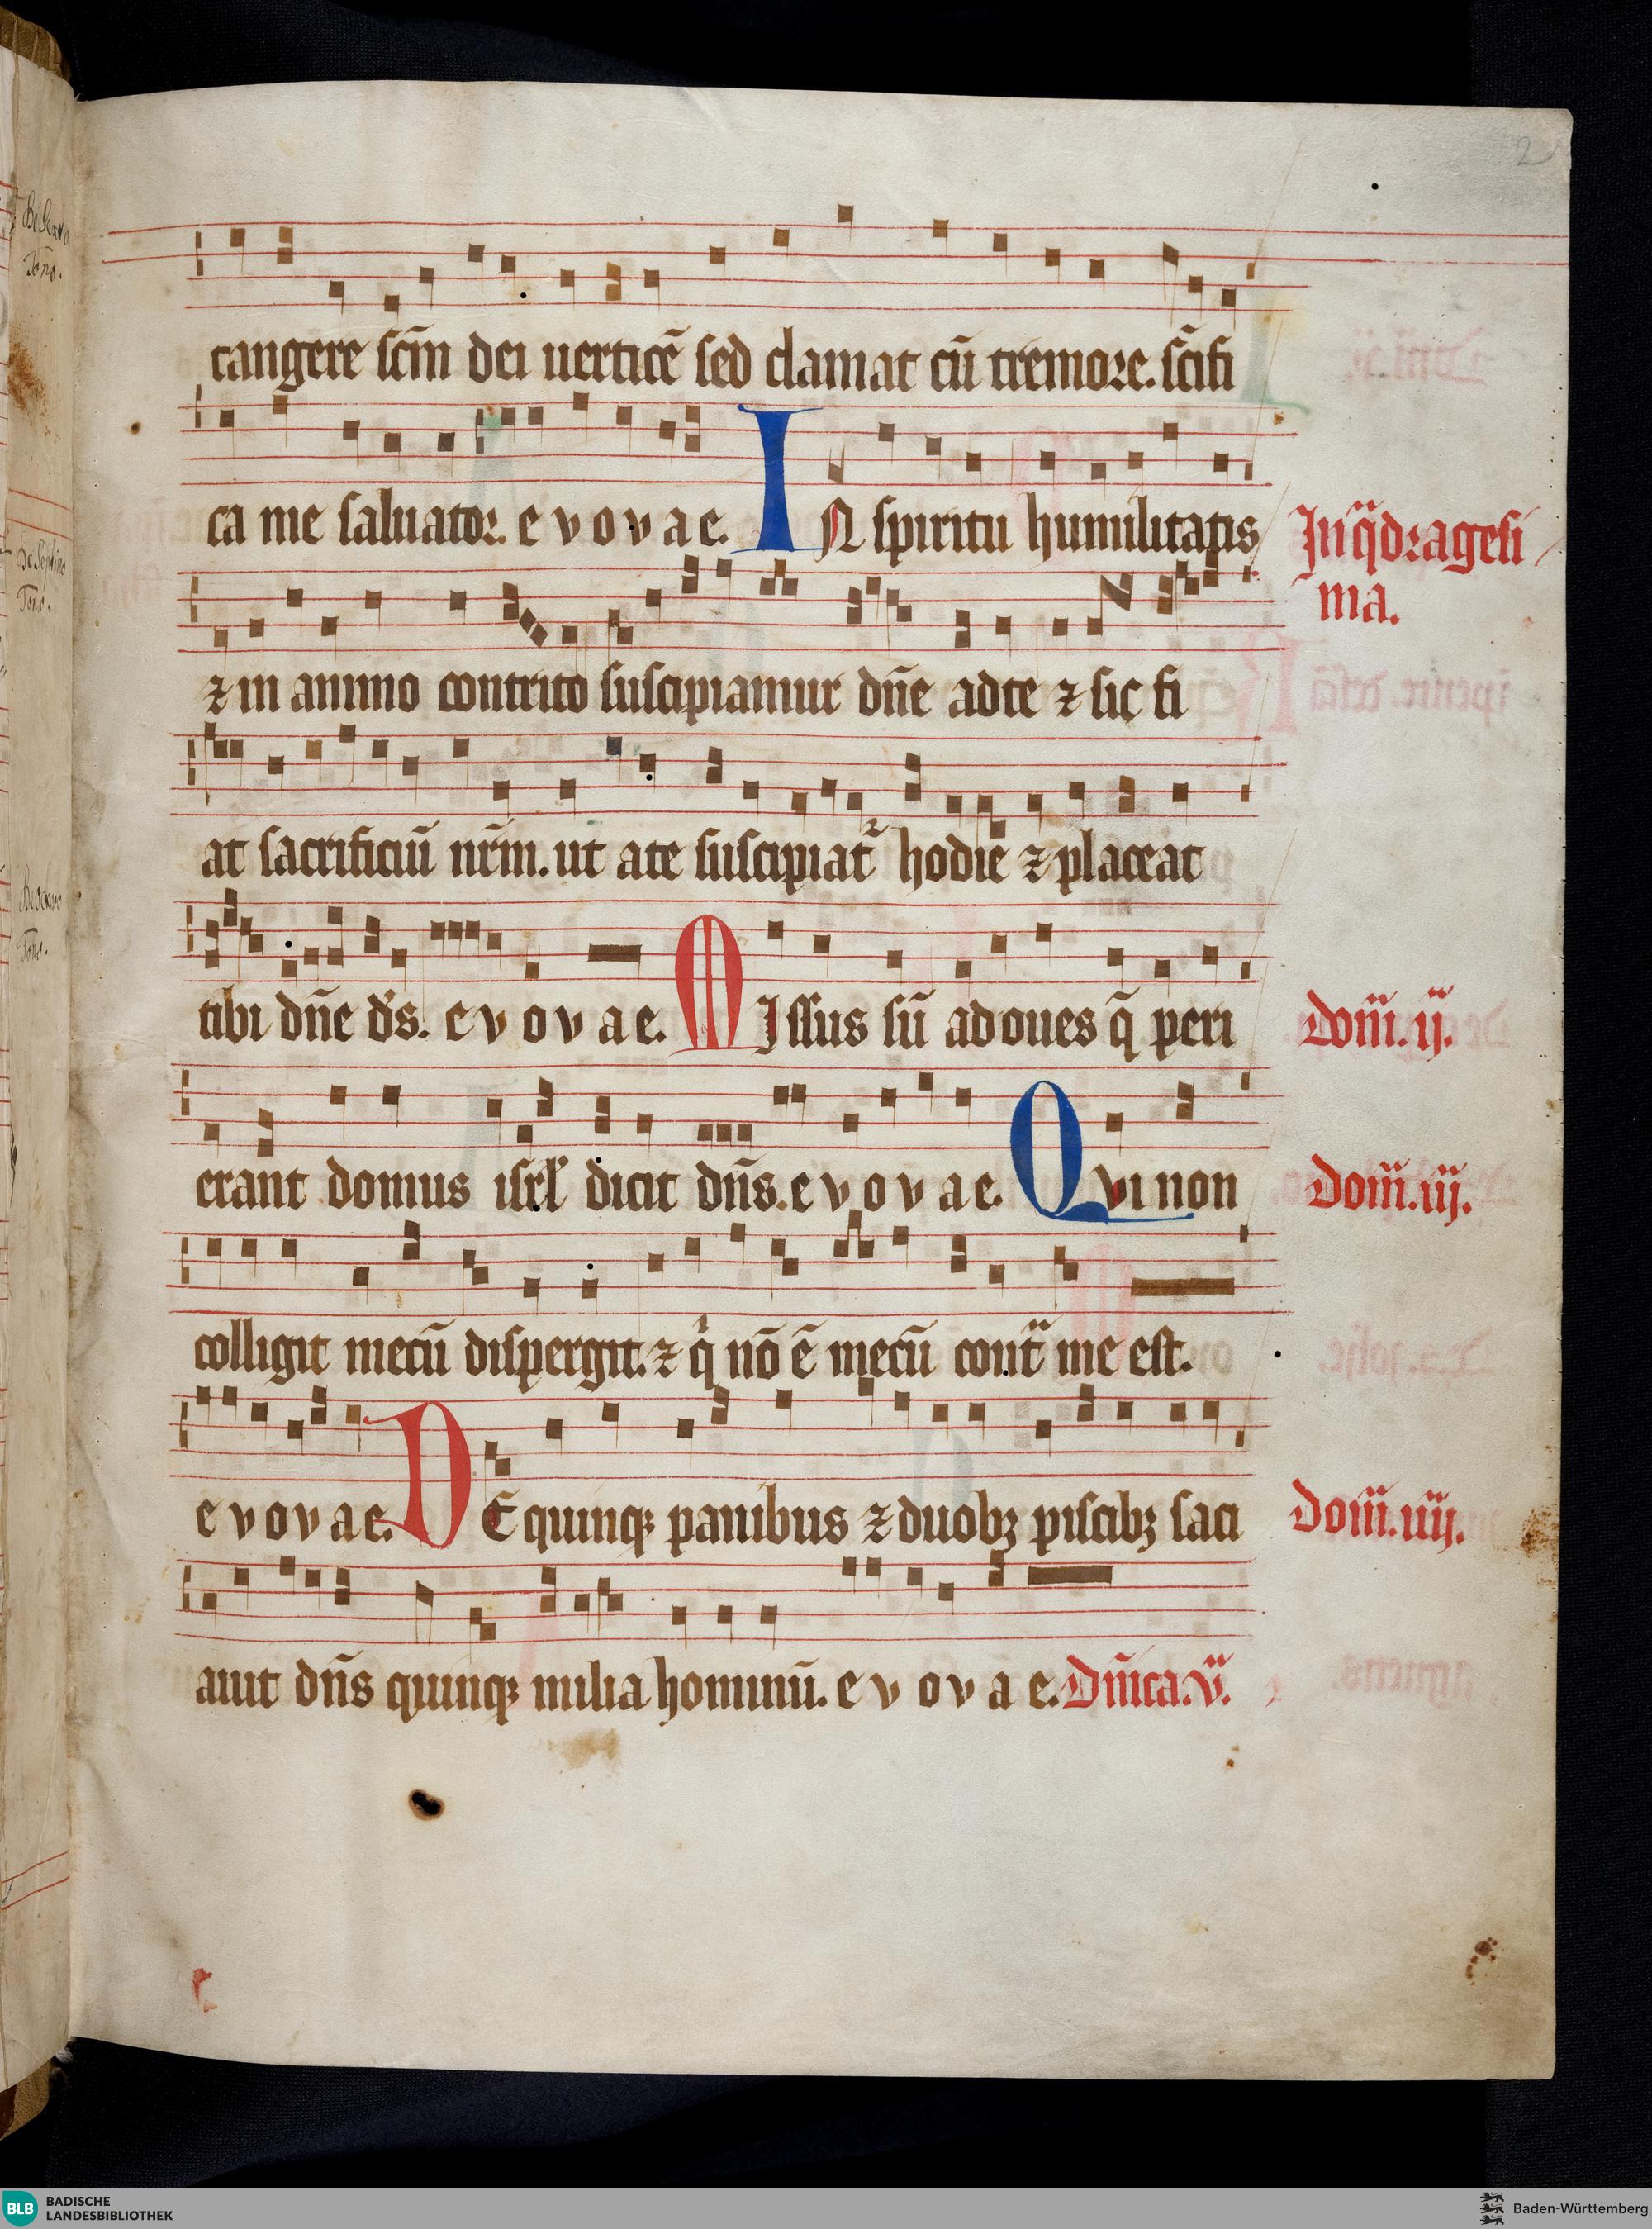 2
tangere scm̄ dei uerticē sed clamat cū tremore. scīfi
ca me saluator. e v o v a e. IN spiritu humilitatis
In qͣdragesi
ma.
⁊ in animo contrito suscipiamur dn̄e adte ⁊ sic fi
at sacrificiū nr̄m. ut ate suscipiat᷑ hodie ⁊ placeat
tibi dn̄e ds̄. e v o v a e. MIssus sū ad oues q̄ peri
Dom̄. ij.
erant domus isrl̄ dicit dn̄s. e v o v a e. Qvi non
Dom̄. iij.
colligit mecū dispergit. ⁊ qͥ nō ē mecū contͣ me est.
e v o v a e. DE quinqꝫ panibus ⁊ duobꝫ piscibꝫ saci
Dom̄. iiij.
auit dn̄s quinqꝫ milia hominū. e v o v a e. Dn̄ica. v.
BLB BADISCHE
LANDESBIBLIOTHEK
Baden-Württemberg